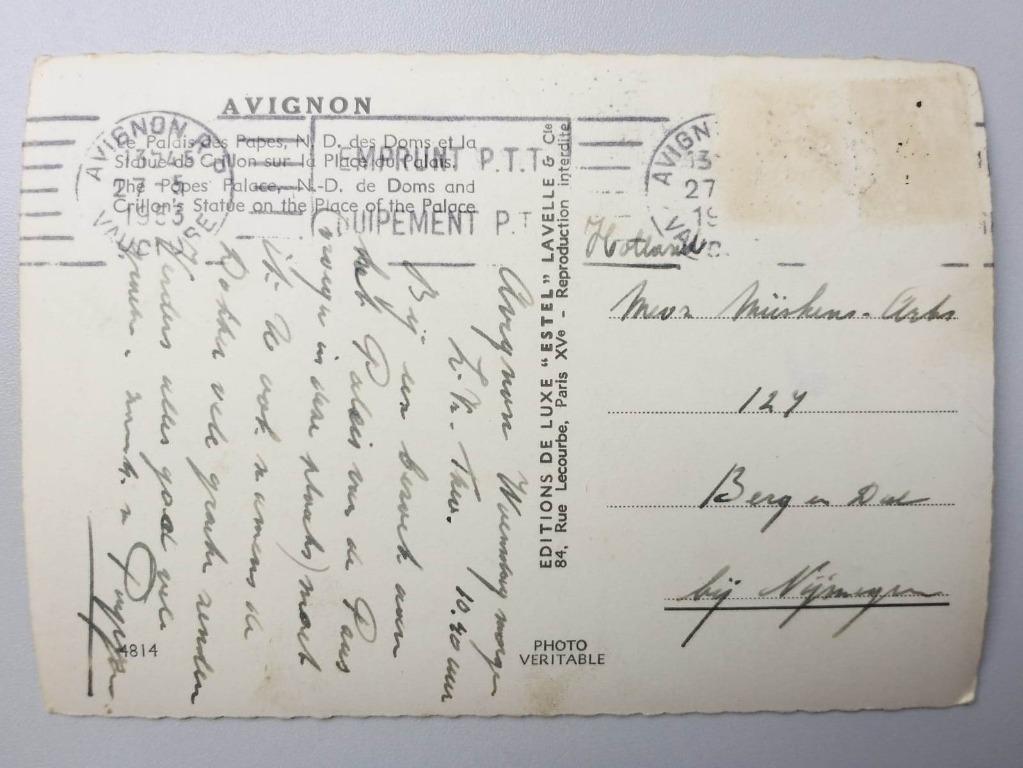 AVIGNON
Le Palais des Papes, N. D. des Doms et la
Statue de Crillon sur la Place du Palais.
The Popes' Palace, N.-D. de Doms and
Crillon's Statue on the Place of the Palace
AVIGNON R.P.
13
27-5
1953
VAUCLUSE
EMPRUNT P.T.T
QUIPEMENT P.T
AVIGN
13
27
19
Avignon Woensdag morgen
10.40 uur
Bij een bezoek aan
het Paleis van de Paus
in deze plaats) moet
ik U ook namens de
Dokter vele groeten zenden
Verders alles goed vele
EDITIONS DE LUXE "ESTEL" LAVELLE & Cie
84, Rue Lecourbe, Paris XVe - Reproduction interdite
Holland
Mevr Müskens-Arbs
127
Berg en Dal
bij Nijmegen
4814
PHOTO
VERITABLE